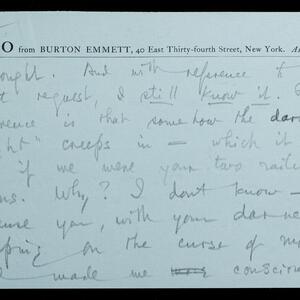 O from BURTON EMMETT, 40 East Thirty-fourth Street, New York. A
ought. And with reference to
t request, I still know it.
rence is that somehow the dar
ght" creeps in — which it
if we were your two
ns. Why? I don't know —
ause you, with your darkne
pping on the curse of m
I made me conscious